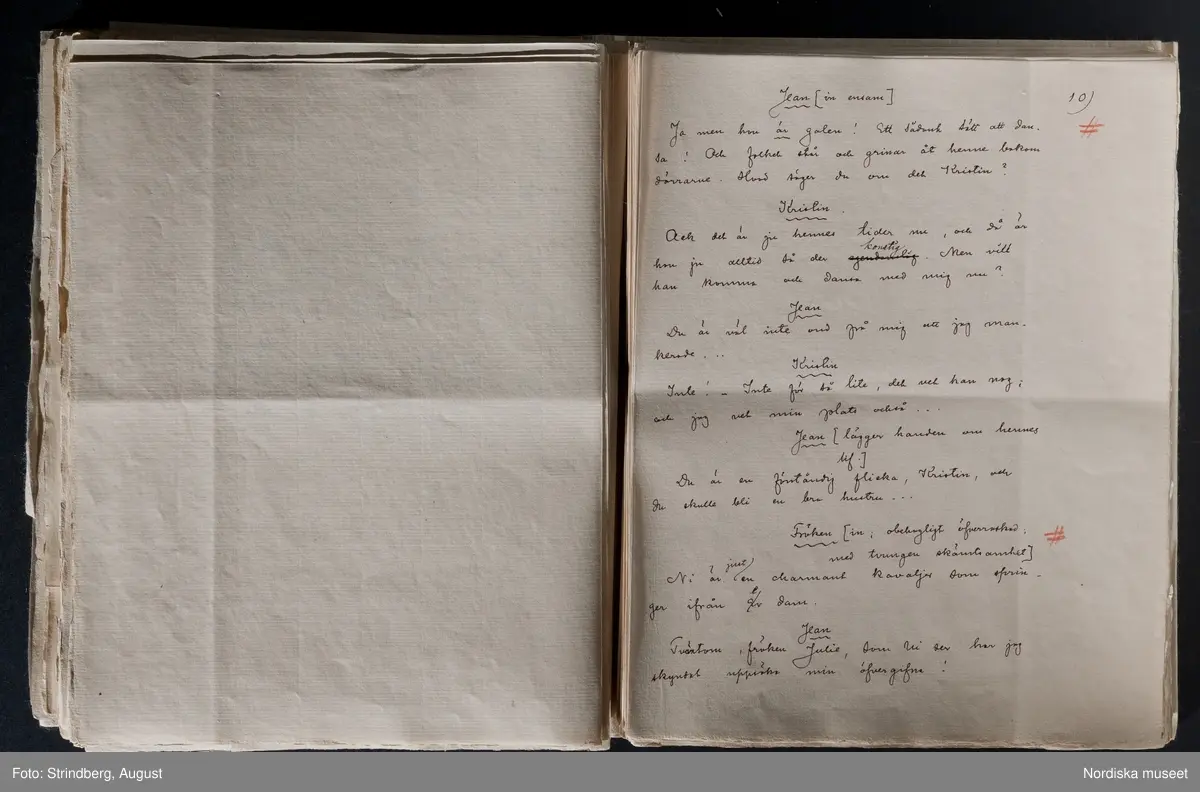 10)
Jean [in ensam]
Ja men hon är galen! Ett sådant sätt att dan-
sa! Och folket står och grinar åt henne bakom
dörrarne. Hvad säger du om det Kristin?
Kristin.
Ack det är ju hennes tider nu, och då är
konstig
hon ju alltid så der egendomlig. Men vill
han komma och dansa med mig nu?
Jean
Du är väl inte ond på mig att jag man-
kerade...
Kristin
Inte! – Inte för så lite, det vet han nog;
och jag vet min plats också...
Jean [lägger handen om hennes
lif.]
Du är en förståndig flicka, Kristin, och
du skulle bli en bra hustru...
Fröken [in; obehagligt öfverraskad.
med tvungen skämtsamhet]
just
Ni är en charmant kavaljer som sprin-
ger ifrån Er dam.
Jean
Tvärtom, fröken Julie, som Ni ser har jag
skyndat uppsöka min öfvergifna!
Foto: Strindberg, August
Nordiska museet